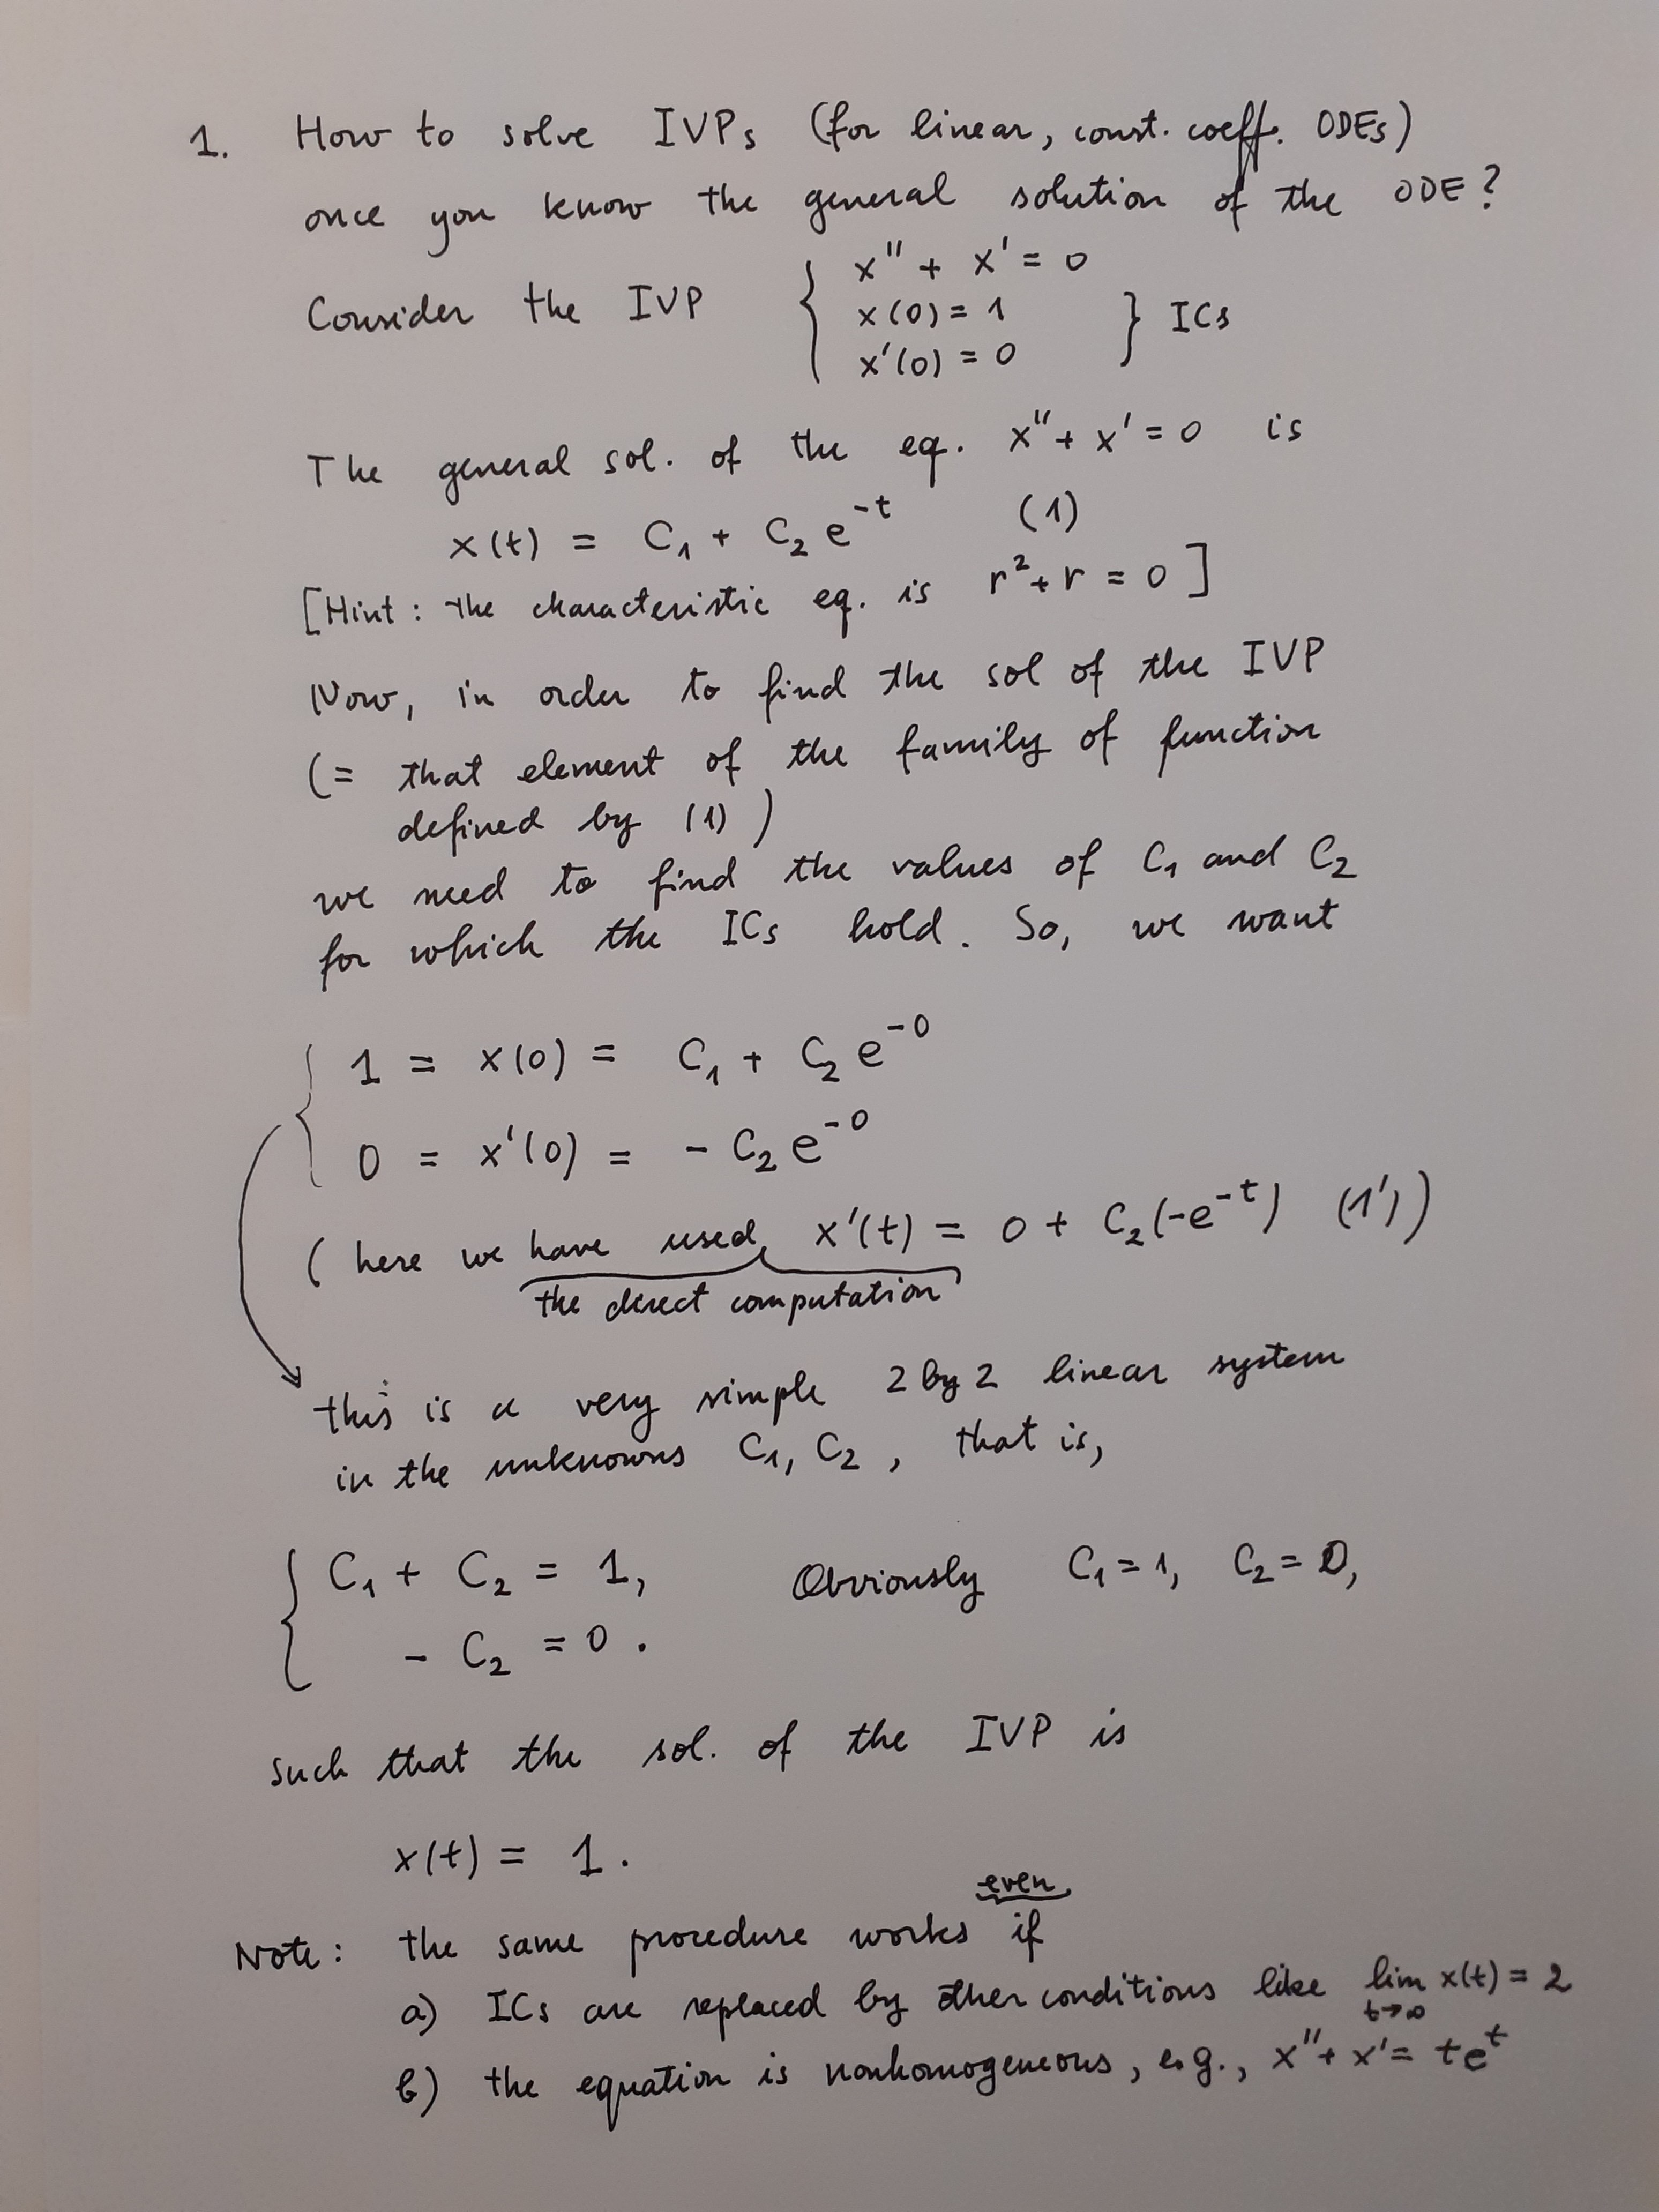 1. How to solve IVPs (for linear, const. coeff. ODEs)
once you know the general solution of the ODE?
Consider the IVP { x'' + x' = 0
x(0) = 1
x'(0) = 0 } ICs
The general sol. of the eq. x'' + x' = 0 is
x(t) = C₁ + C₂ e^{-t} (1)
[Hint: the characteristic eq. is r² + r = 0]
Now, in order to find the sol of the IVP
(= that element of the family of function
defined by (1))
we need to find the values of C₁ and C₂
for which the ICs hold. So, we want
{ 1 = x(0) = C₁ + C₂ e^{-0}
0 = x'(0) = - C₂ e^{-0}
(here we have used x'(t) = 0 + C₂(-e^{-t}) (1'))
the direct computation
this is a very simple 2 by 2 linear system
in the unknowns C₁, C₂, that is,
{ C₁ + C₂ = 1, Obviously C₁ = 1, C₂ = 0,
- C₂ = 0.
such that the sol. of the IVP is
x(t) = 1.
Note: the same procedure works even if
a) ICs are replaced by other conditions like lim_{t→∞} x(t) = 2
b) the equation is nonhomogeneous, e.g., x'' + x' = te^t